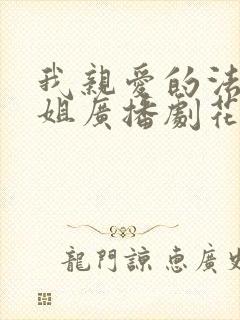 我親愛的法
姐廣播劇花
龍門諒惠廣